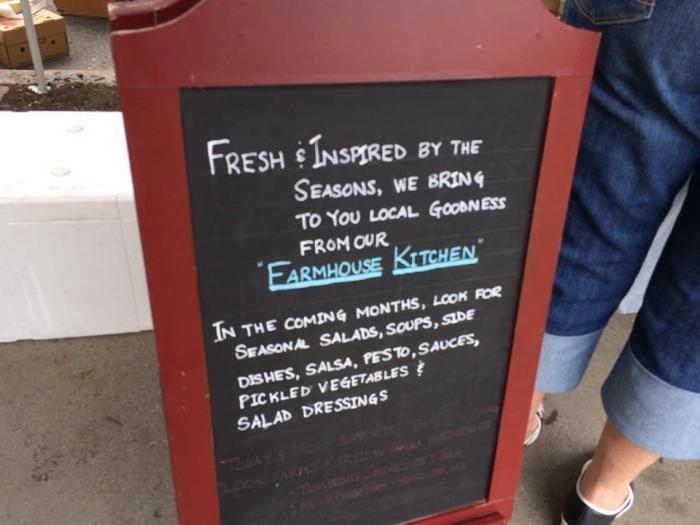 FRESH & INSPIRED BY THE
SEASONS, WE BRING
TO YOU LOCAL GOODNESS
FROM OUR
"FARMHOUSE KITCHEN"
IN THE COMING MONTHS, LOOK FOR
SEASONAL SALADS, SOUPS, SIDE
DISHES, SALSA, PESTO, SAUCES,
PICKLED VEGETABLES &
SALAD DRESSINGS
TODAY'S MENU SUPPORTS
LOCAL FARMS & ARTISAN